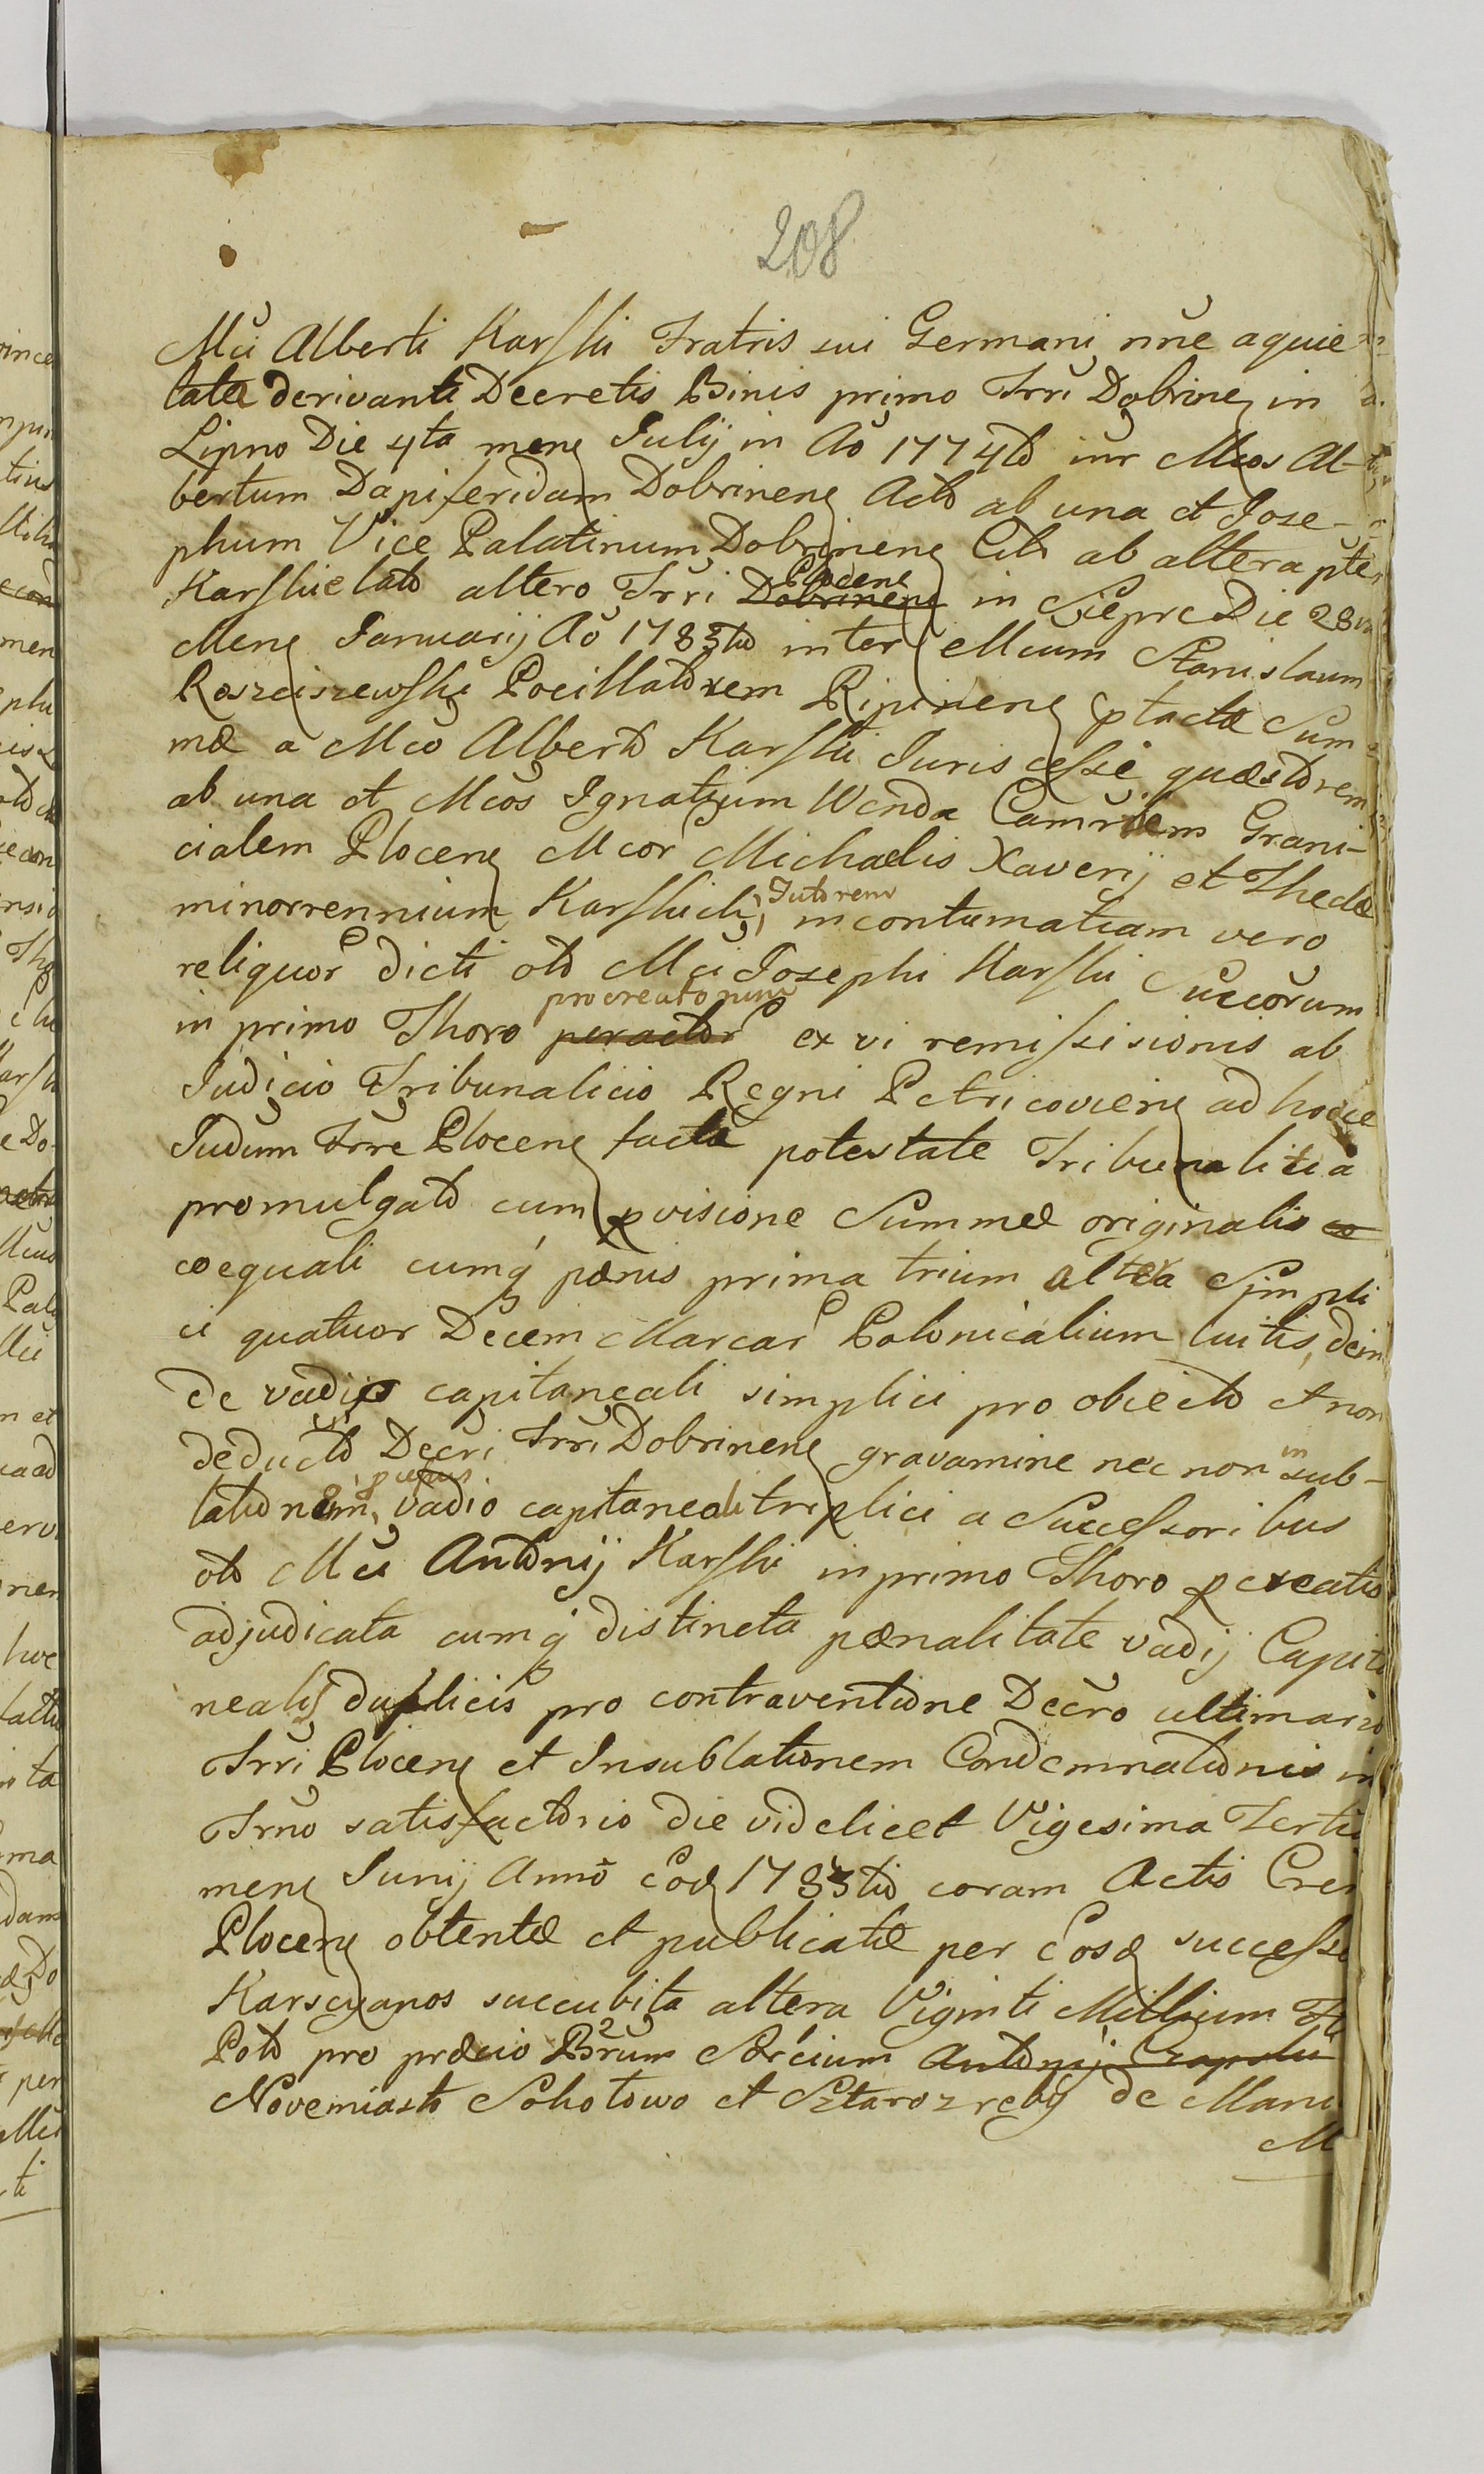 208
Mci Alberti Karski Fratris sui Germani nne aquie
tata derivanti Decretis Binis primo Trri Dobrinen in
Lipno Die 4ta mens Julij in Ao 1774to inr Mcos Al-
bertum Dapiferidam Dobrinens Acto ab una et Jose-
phum Vice Palatinum Dobrinens Cit ab altera pte
Karskie lato altero Trri Dobrinens Plocens in Siepre Die 28va
Mens Januarij Ao 1783tio inter Mcum Stanislaum
Roszciszewski Pocillatorem Ripinens ptactæ Sum
mæ a Mco Alberto Karski Juris cessi quæstorem
ab una et Mcos Ignatium Wenda Camrlem Grani-
cialem Plocens Mcor Michaelis Xaverij et Theclæ
minorrennium Karskich, Tutorem in contumatiam vero
reliquor dicti olo Mci Josephi Karski Succorum
in primo Thoro peractor procreatorum ex vi remissisionis ab
Judicio Tribunalicio Regni Petricoviens ad hocce
Judum Trre Plocens facta potestate Tribunalitia
promulgato cum pvisione Summæ originalis co
coequali cumq pænis prima trium altera Simpli
ci quatuor Decem Marcar Polonicalium luitis, dein
de vadijs capitaneali simplici pro obiecto et non
deducto Decri Trri Dobrinens gravamine nec non in sub-
lationem, vadio capitaneali triplici a Successoribus
olo Mci Antonij Karski in primo Thoro pcreatis
adjudicata cumq distincta pænalitate vadij Capita
nealis duplicis pro contraventione Decro ultimario
Trri Plocens et Insublationem Condemnationis in
Trno satisfactorio die videlicet Vigesima Tertia
mens Junij Anno Eod 1783tio coram Actis Cren
Plocens obtentæ et publicatæ per Eosd successo
Karscyanos succubita altera Viginti Millium Fl
Polo pro præcio Brum Sorcium Antonij Czapski
Novemiasto Sohołowo et Sztarozreby de Manu
M